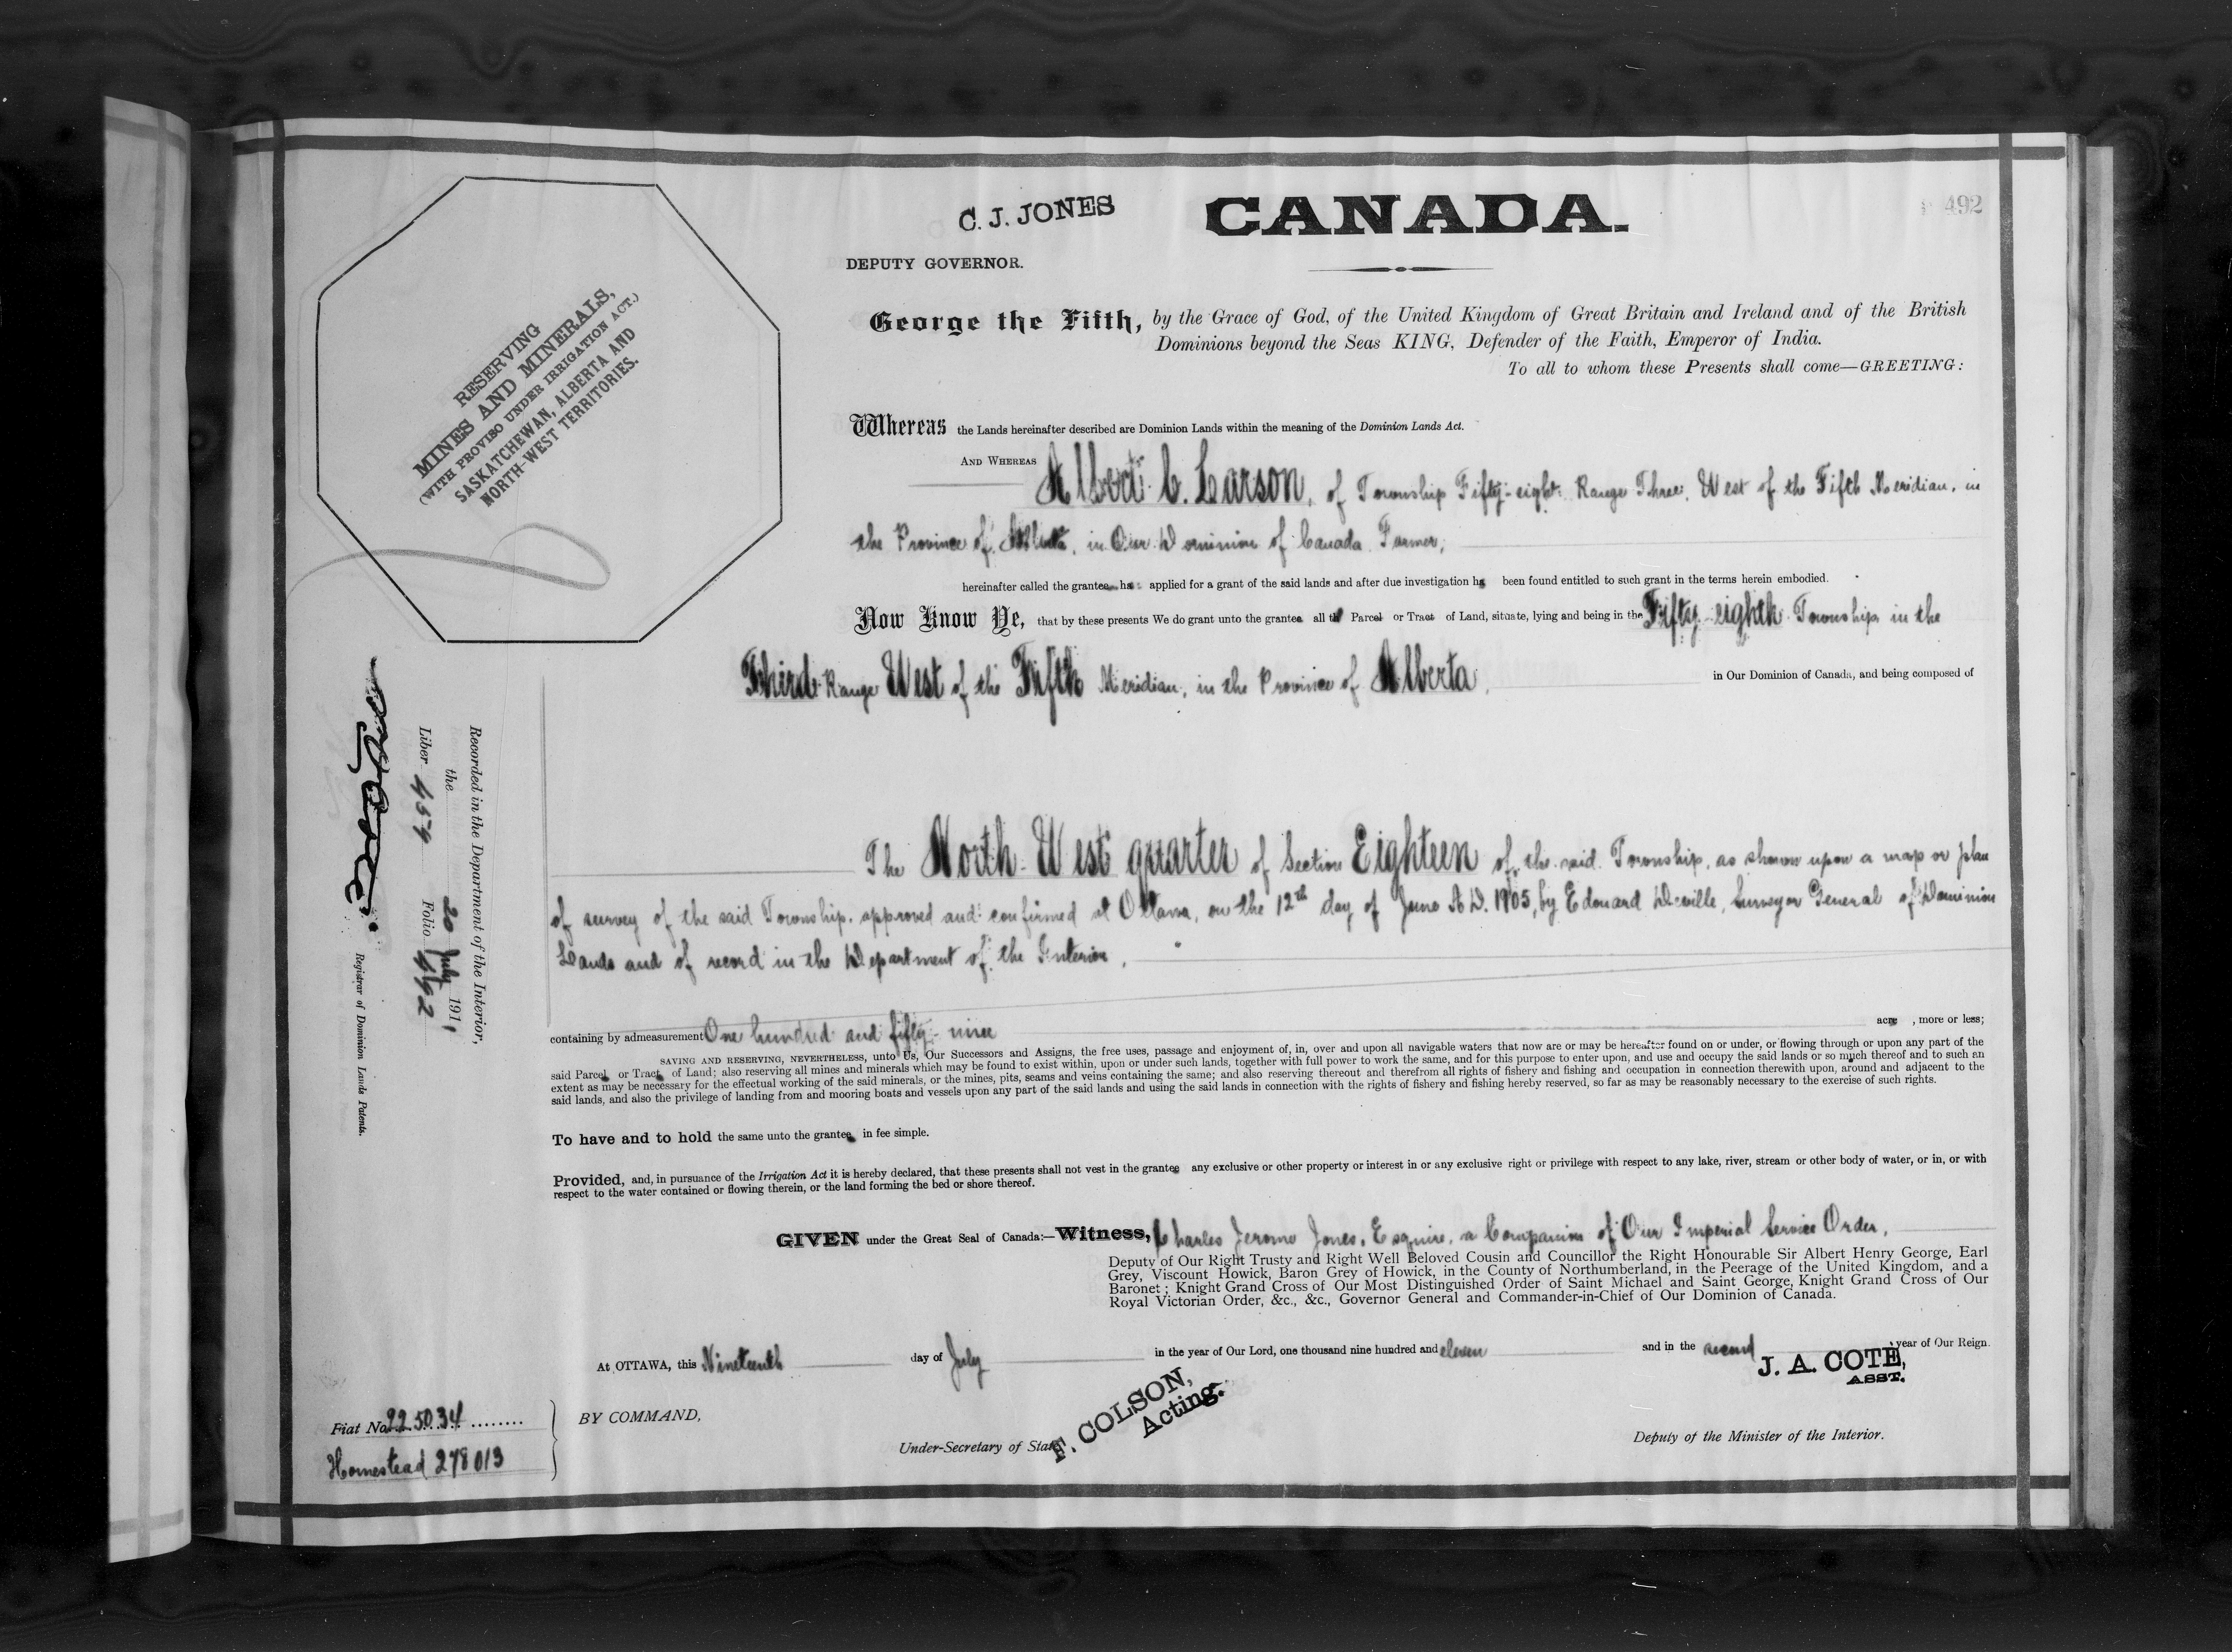 C. J. JONES
CANADA.
492
DEPUTY GOVERNOR.
George the Fifth, by the Grace of God, of the United Kingdom of Great Britain and Ireland and of the British
Dominions beyond the Seas KING, Defender of the Faith, Emperor of India.
To all to whom these Presents shall come—GREETING:
RESERVING
MINES AND MINERALS,
(WITH PROVISO UNDER IRRIGATION ACT.)
SASKATCHEWAN, ALBERTA AND
NORTH-WEST TERRITORIES.
Whereas the Lands hereinafter described are Dominion Lands within the meaning of the Dominion Lands Act.
AND WHEREAS Albert C. Larson, of Township Fifty-eight Range Three, West of the Fifth Meridian, in
the Province of Alberta, in Our Dominion of Canada Farmer,
hereinafter called the grantee has applied for a grant of the said lands and after due investigation has been found entitled to such grant in the terms herein embodied.
Now Know Ye, that by these presents We do grant unto the grantee all that Parcel or Tract of Land, situate, lying and being in the Fifty-eighth Township in the
Third Range West of the Fifth Meridian, in the Province of Alberta, in Our Dominion of Canada, and being composed of
The North-West quarter of Section Eighteen of the said Township, as shown upon a map or plan
of survey of the said Township, approved and confirmed at Ottawa, on the 12th day of June A.D. 1905, by Edouard Deville, Surveyor General of Dominion
Lands and of record in the Department of the Interior,
containing by admeasurement One hundred and fifty-nine acre , more or less;
SAVING AND RESERVING, NEVERTHELESS, unto Us, Our Successors and Assigns, the free uses, passage and enjoyment of, in, over and upon all navigable waters that now are or may be hereafter found on or under, or flowing through or upon any part of the
said Parcel or Tract of Land; also reserving all mines and minerals which may be found to exist within, upon or under such lands, together with full power to work the same, and for this purpose to enter upon, and use and occupy the said lands or so much thereof and to such an
extent as may be necessary for the effectual working of the said minerals, or the mines, pits, seams and veins containing the same; and also reserving thereout and therefrom all rights of fishery and fishing and occupation in connection therewith upon, around and adjacent to the
said lands, and also the privilege of landing from and mooring boats and vessels upon any part of the said lands and using the said lands in connection with the rights of fishery and fishing hereby reserved, so far as may be reasonably necessary to the exercise of such rights.
To have and to hold the same unto the grantee in fee simple.
Provided, and, in pursuance of the Irrigation Act it is hereby declared, that these presents shall not vest in the grantee any exclusive or other property or interest in or any exclusive right or privilege with respect to any lake, river, stream or other body of water, or in, or with
respect to the water contained or flowing therein, or the land forming the bed or shore thereof.
GIVEN under the Great Seal of Canada:—Witness, Charles Jerome Jones, Esquire, a Companion of Our Imperial Service Order,
Deputy of Our Right Trusty and Right Well Beloved Cousin and Councillor the Right Honourable Sir Albert Henry George, Earl
Grey, Viscount Howick, Baron Grey of Howick, in the County of Northumberland, in the Peerage of the United Kingdom, and a
Baronet; Knight Grand Cross of Our Most Distinguished Order of Saint Michael and Saint George, Knight Grand Cross of Our
Royal Victorian Order, &c., &c., Governor General and Commander-in-Chief of Our Dominion of Canada.
At OTTAWA, this Nineteenth day of July in the year of Our Lord, one thousand nine hundred and eleven and in the second year of Our Reign.
J. A. COTE,
ASST.
BY COMMAND,
F. COLSON,
Acting.
Under-Secretary of State.
Deputy of the Minister of the Interior.
Fiat No. 225034
Homestead 278013
Recorded in the Department of the Interior,
the 20 July 1911
Liber 454 Folio 492
Registrar of Dominion Lands Patents.